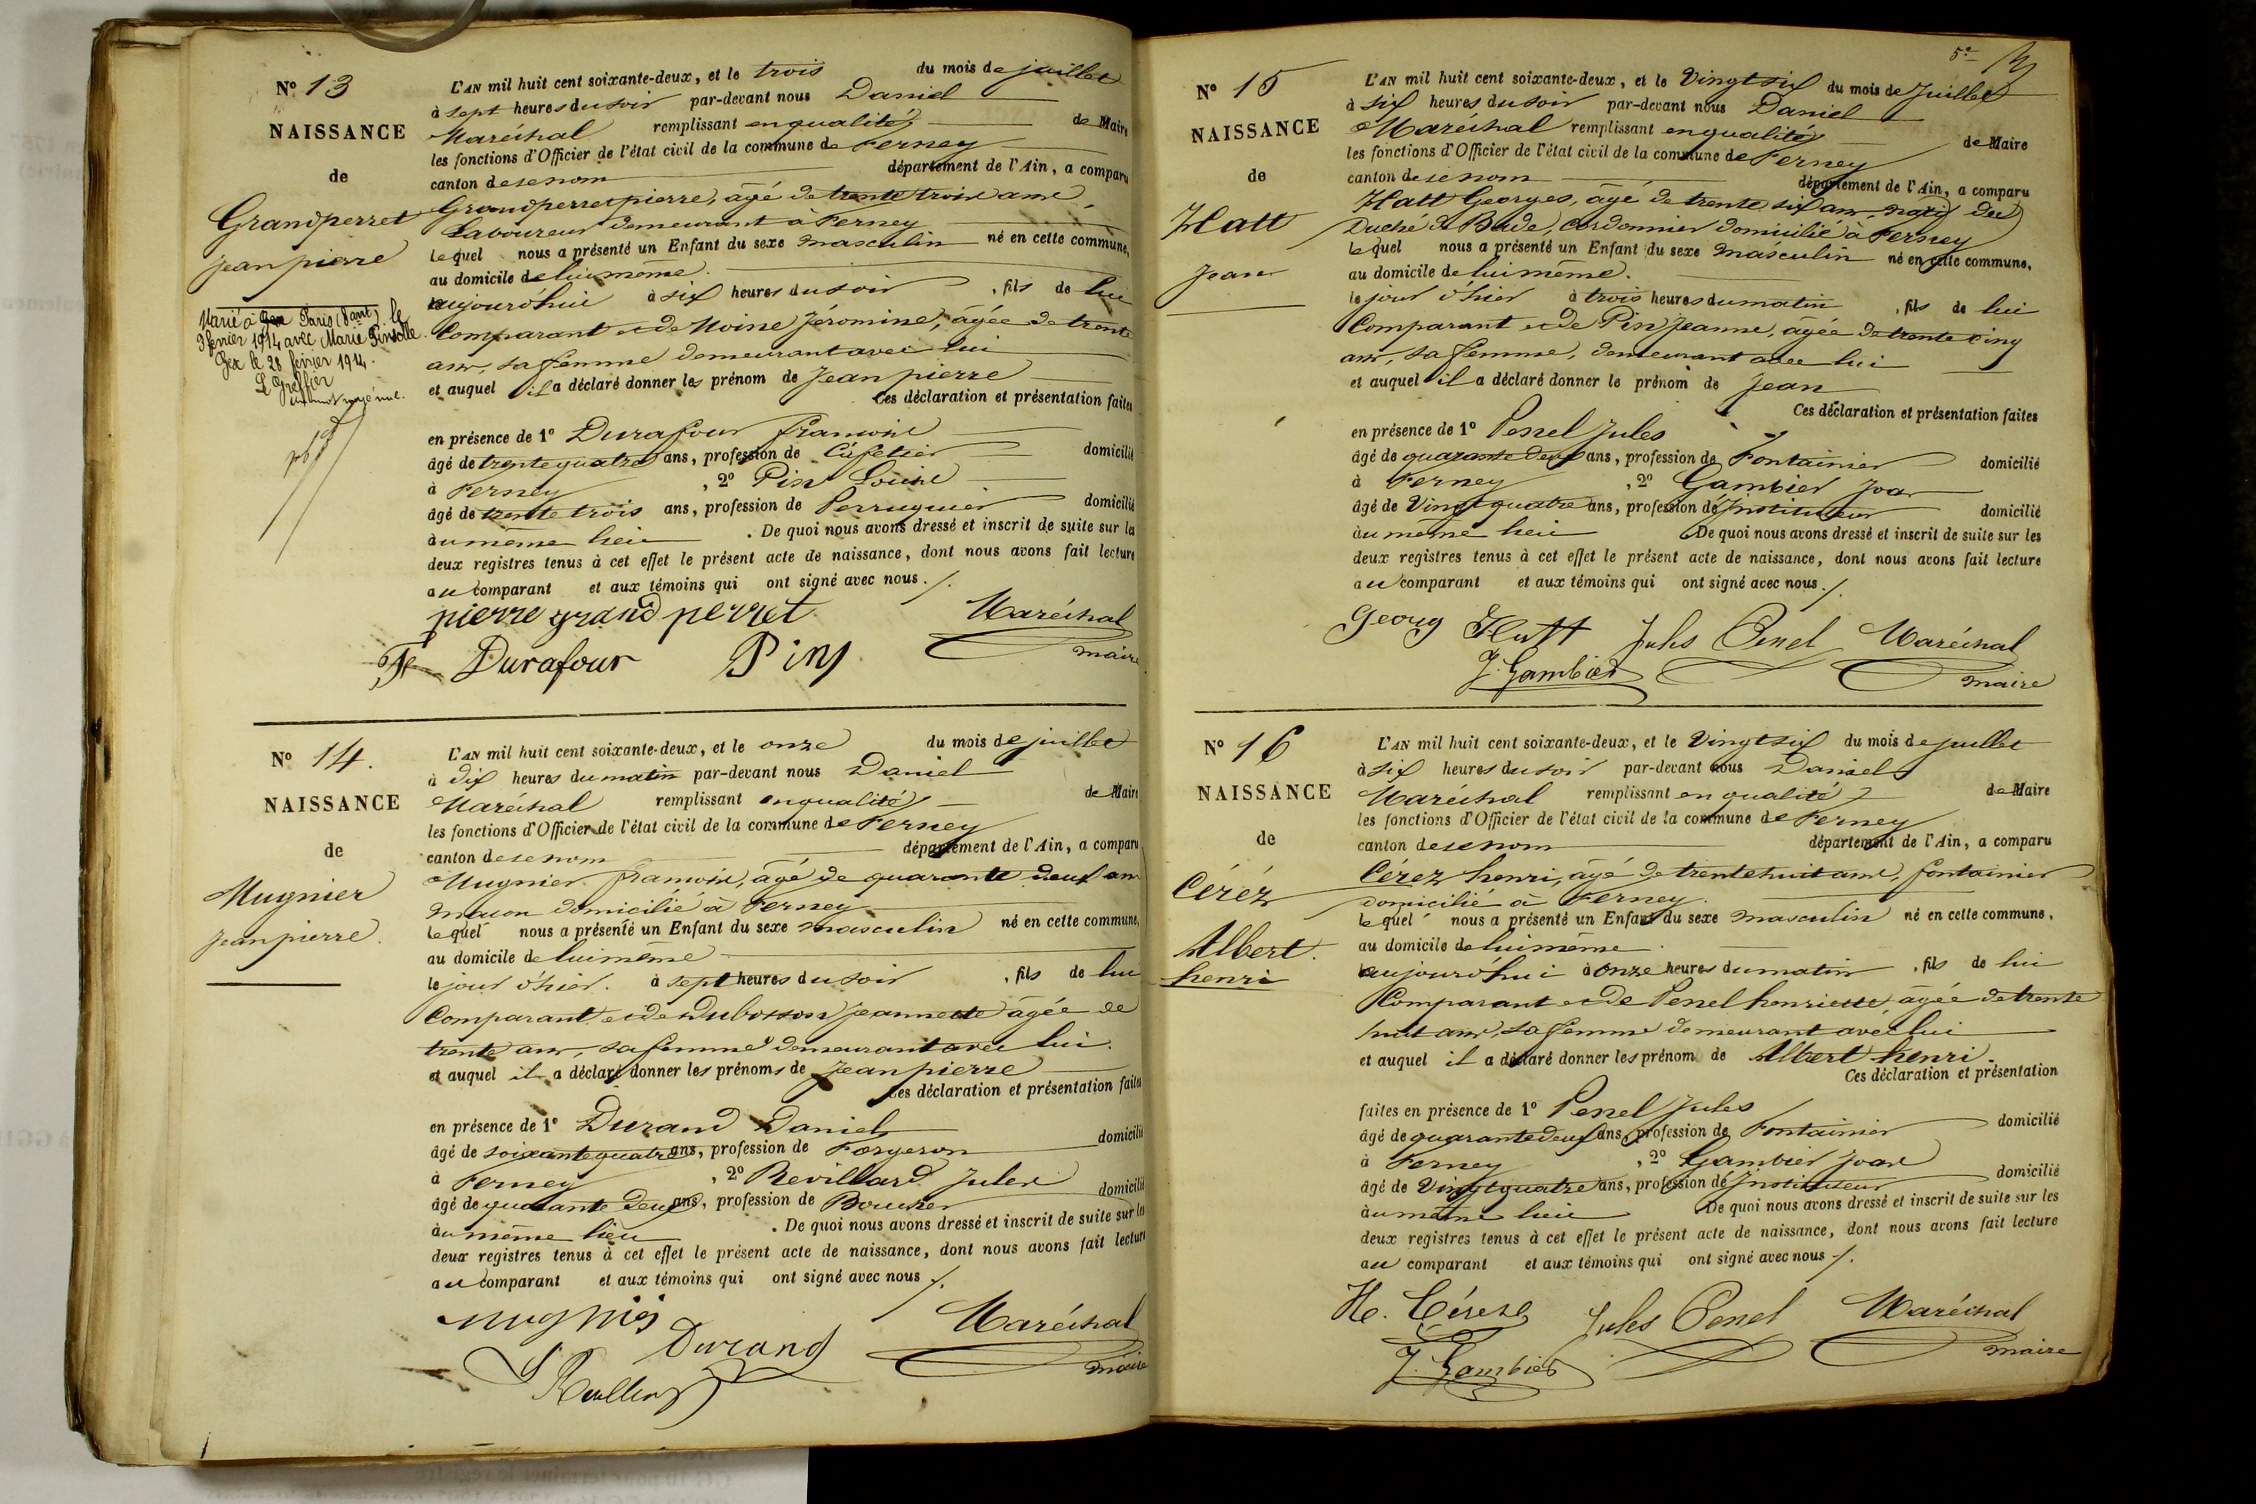 N° 13
NAISSANCE
de
Grandperret
jean pierre
Marié à Paris (8 ant) le
3 février 1914 avec Marie Pinsolle.
Gex le 28 février 1914.
Le Greffier
un mot rayé nul.
L'AN mil huit cent soixante-deux, et le trois du mois de juillet
à sept heures du soir par-devant nous Daniel
Maréchal remplissant en qualité de Maire
les fonctions d'Officier de l'état civil de la commune de Ferney
canton de ce nom département de l'Ain, a comparu
Grandperret pierre, âgé de trente trois ans,
Laboureur demeurant à Ferney
lequel nous a présenté un Enfant du sexe masculin né en cette commune,
au domicile de lui même.
aujourd'hui à six heures du soir, fils de lui
Comparant et de Moine Jéromine, âgée de trente
ans, sa femme demeurant avec lui
et auquel il a déclaré donner les prénom de Jean pierre
Ces déclaration et présentation faites
en présence de 1° Durafour françois
âgé de trente quatre ans, profession de Cafetier domicilié
à Ferney, 2° Pin Louis
âgé de trente trois ans, profession de Perruquier domicilié
au même lieu. De quoi nous avons dressé et inscrit de suite sur les
deux registres tenus à cet effet le présent acte de naissance, dont nous avons fait lecture
au comparant et aux témoins qui ont signé avec nous ./.
pierre grand perret Maréchal
F Durafour Pin maire
N° 14.
NAISSANCE
de
Mugnier
jean pierre.
L'AN mil huit cent soixante-deux, et le onze du mois de juillet
à dix heures du matin par-devant nous Daniel
Maréchal remplissant en qualité de Maire
les fonctions d'Officier de l'état civil de la commune de Ferney
canton de ce nom département de l'Ain, a comparu
Mugnier françois, âgé de quarante deux ans
maçon domicilié à Ferney
lequel nous a présenté un Enfant du sexe masculin né en cette commune,
au domicile de lui même
le jour d'hier. à sept heures du soir, fils de lui
Comparant et de Dubosson Jeannette âgée de
trente ans, sa femme demeurant avec lui.
et auquel il a déclaré donner les prénoms de Jean pierre
Ces déclaration et présentation faites
en présence de 1° Durand Daniel
âgé de soixante quatre ans, profession de Forgeron domicilié
à Ferney, 2° Revillard Jules
âgé de quarante deux ans, profession de Boucher domicilié
au même lieu. De quoi nous avons dressé et inscrit de suite sur les
deux registres tenus à cet effet le présent acte de naissance, dont nous avons fait lecture
au comparant et aux témoins qui ont signé avec nous ./.
mugnier Durand Maréchal
maire
5e
N° 15
NAISSANCE
de
Hatt
Jean
L'AN mil huit cent soixante-deux, et le Vingt six du mois de Juillet
à six heures du soir par-devant nous Daniel
Maréchal remplissant en qualité de Maire
les fonctions d'Officier de l'état civil de la commune de Ferney
canton de ce nom département de l'Ain, a comparu
Hatt Georges, âgé de trente six ans, natif du
Duché de Bade, cordonnier domicilié à Ferney
lequel nous a présenté un Enfant du sexe masculin né en cette commune,
au domicile de lui même.
le jour d'hier à trois heures du matin, fils de lui
Comparant et de Pin Jeanne, âgée de trente cinq
ans, sa femme, demeurant avec lui
et auquel il a déclaré donner le prénom de Jean
Ces déclaration et présentation faites
en présence de 1° Penel Jules
âgé de quarante deux ans, profession de Fontainier domicilié
à Ferney, 2° Gambier Joan
âgé de Vingt quatre ans, profession de Instituteur domicilié
au même lieu De quoi nous avons dressé et inscrit de suite sur les
deux registres tenus à cet effet le présent acte de naissance, dont nous avons fait lecture
au comparant et aux témoins qui ont signé avec nous ./.
Georg Hatt Jules Penel Maréchal
J. Gambier maire
N° 16
NAISSANCE
de
Cérèz
Albert.
henri
L'AN mil huit cent soixante-deux, et le Vingt six du mois de juillet
à six heures du soir par-devant nous Daniel
Maréchal remplissant en qualité de Maire
les fonctions d'Officier de l'état civil de la commune de Ferney
canton de ce nom département de l'Ain, a comparu
Cérez henri, âgé de trente huit ans, fontainier
domicilié à Ferney.
lequel nous a présenté un Enfant du sexe masculin né en cette commune,
au domicile de lui même.
aujourd'hui à onze heures du matin, fils de lui
Comparant et de Penel henriette âgée de trente
huit ans, sa femme demeurant avec lui
et auquel il a déclaré donner les prénom de Albert henri.
Ces déclaration et présentation
faites en présence de 1° Penel Jules
âgé de quarante deux ans, profession de Fontainier domicilié
à Ferney, 2° Gambier Joan
âgé de Vingt quatre ans, profession de Instituteur domicilié
au même lieu De quoi nous avons dressé et inscrit de suite sur les
deux registres tenus à cet effet le présent acte de naissance, dont nous avons fait lecture
au comparant et aux témoins qui ont signé avec nous ./.
He. Cérèze Jules Penel Maréchal
J. Gambier maire